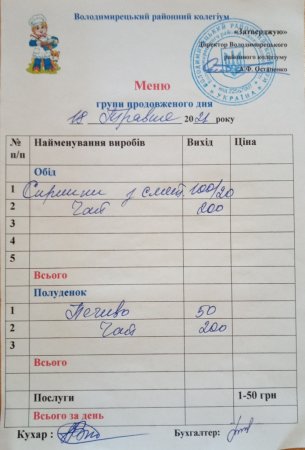 Володимирецький районний колегіум
«Затверджую»
Директор Володимирецького
районного колегіуму
А.Ф. Остапенко
УКРАЇНА
Меню
групи продовженого дня
18 Травня 2021 року
№ п/п Найменування виробів Вихід Ціна
Обід
1 Сирники з смет. 100/20
2 Чай 200
3
4
5
Всього
Полуденок
1 Печиво 50
2 Чай 200
3
Всього
Послуги 1-50 грн
Всього за день
Кухар : Бухгалтер: